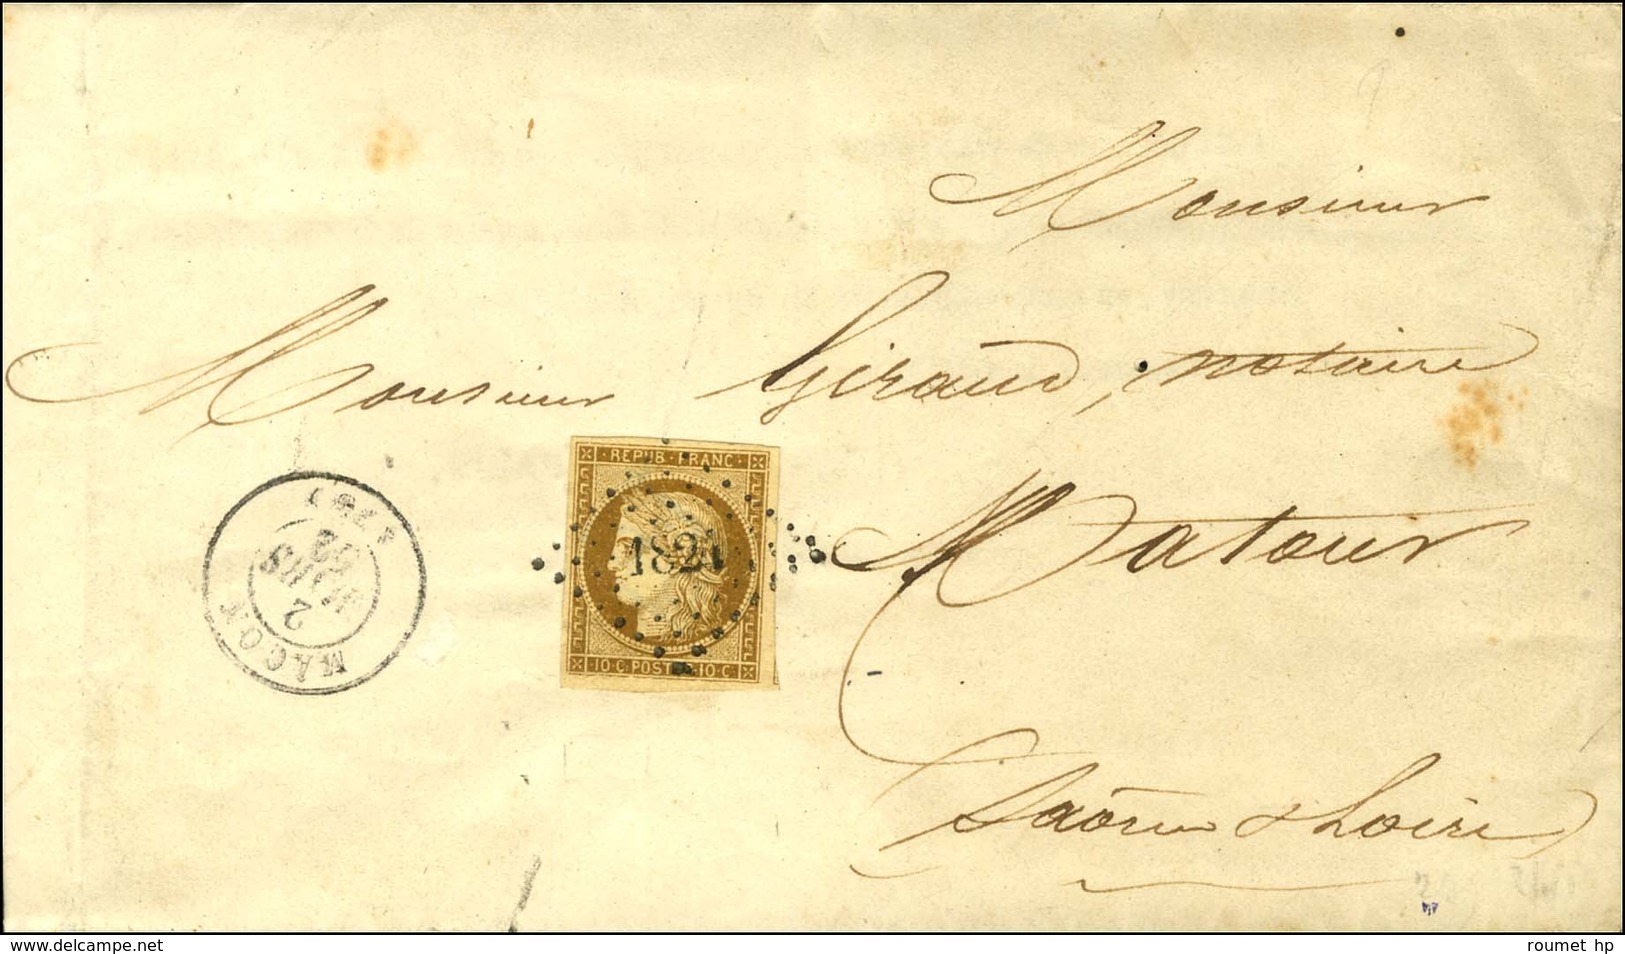 Monsieur
Monsieur Giraud, notaire
REPUB. FRANC.
1821
10·C. POSTE 10·C.
MACON
2
MARS
Matour
Saône & Loire
www.delcampe.net
roumet hp